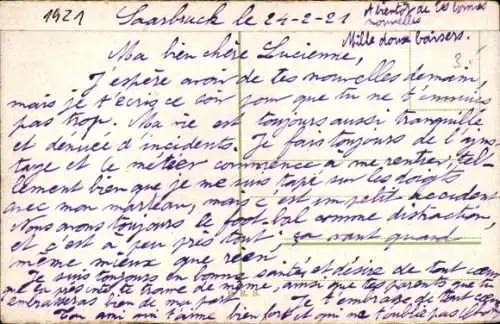 1921
Saarbruck le 24-2-21
A bientôt de tes bonnes
nouvelles
Mille doux baisers.
3
Ma bien chère Lucienne,
J'espère avoir de tes nouvelles demain,
mais je t'écris ce soir pour que tu ne t'ennuies
pas trop. Ma vie est toujours aussi tranquille
et dénuée d'incidents. Je fais toujours de l'ajus-
tage et le métier commence a me rentrer, tel-
lement bien que je me suis tapé sur les doigts
avec mon marteau, mais c'est un petit accident
Nous avons toujours le foot-bal comme distraction,
et c'est à peu près tout ; ça vaut quand
même mieux que rien
Je suis toujours en bonne santé et désire de tout cœur
que ma présente te trouve de même, ainsi que tes parents que tu
embrasseras bien de ma part. Je t'embrasse de tout
Ton ami qui t'aime bien fort et qui ne t'oublie pas